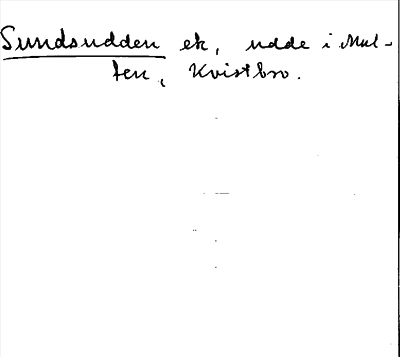 Sundsudden ek, udde i Mul-
ten, Kvistbro.